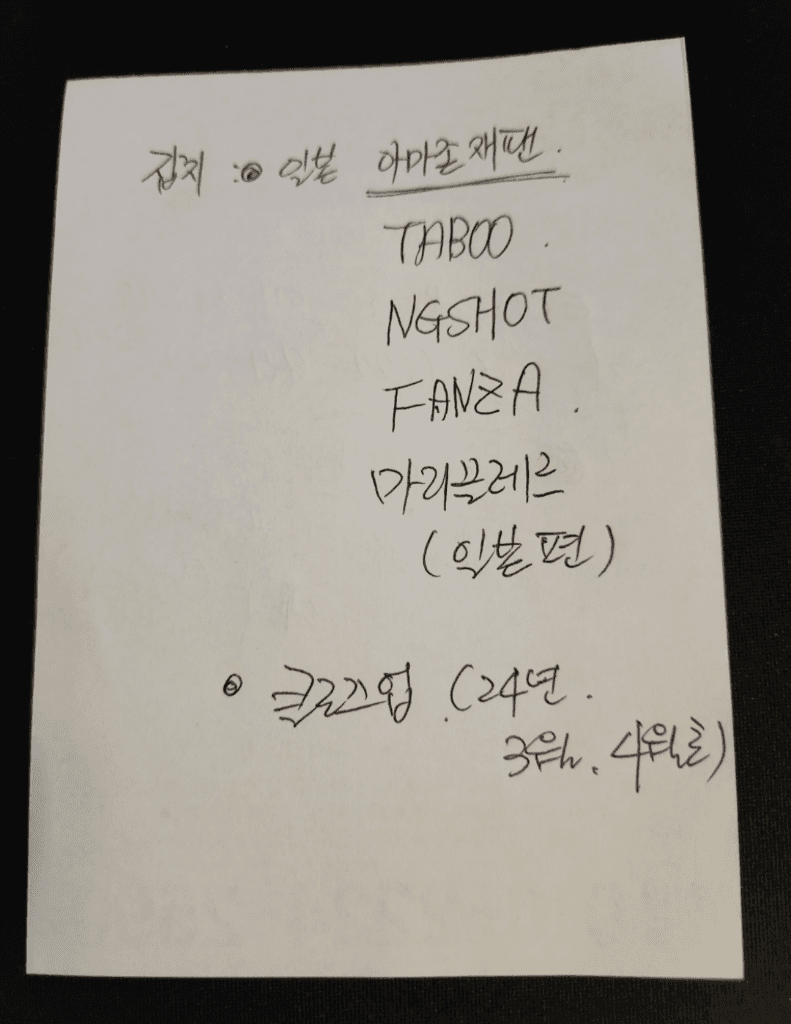 잡지 : 일본 아마존재팬.
TABOO.
NGSHOT
FANZA.
마리끌레르
(일본편)
• 클로즈업 (24년.
3월. 4월호)